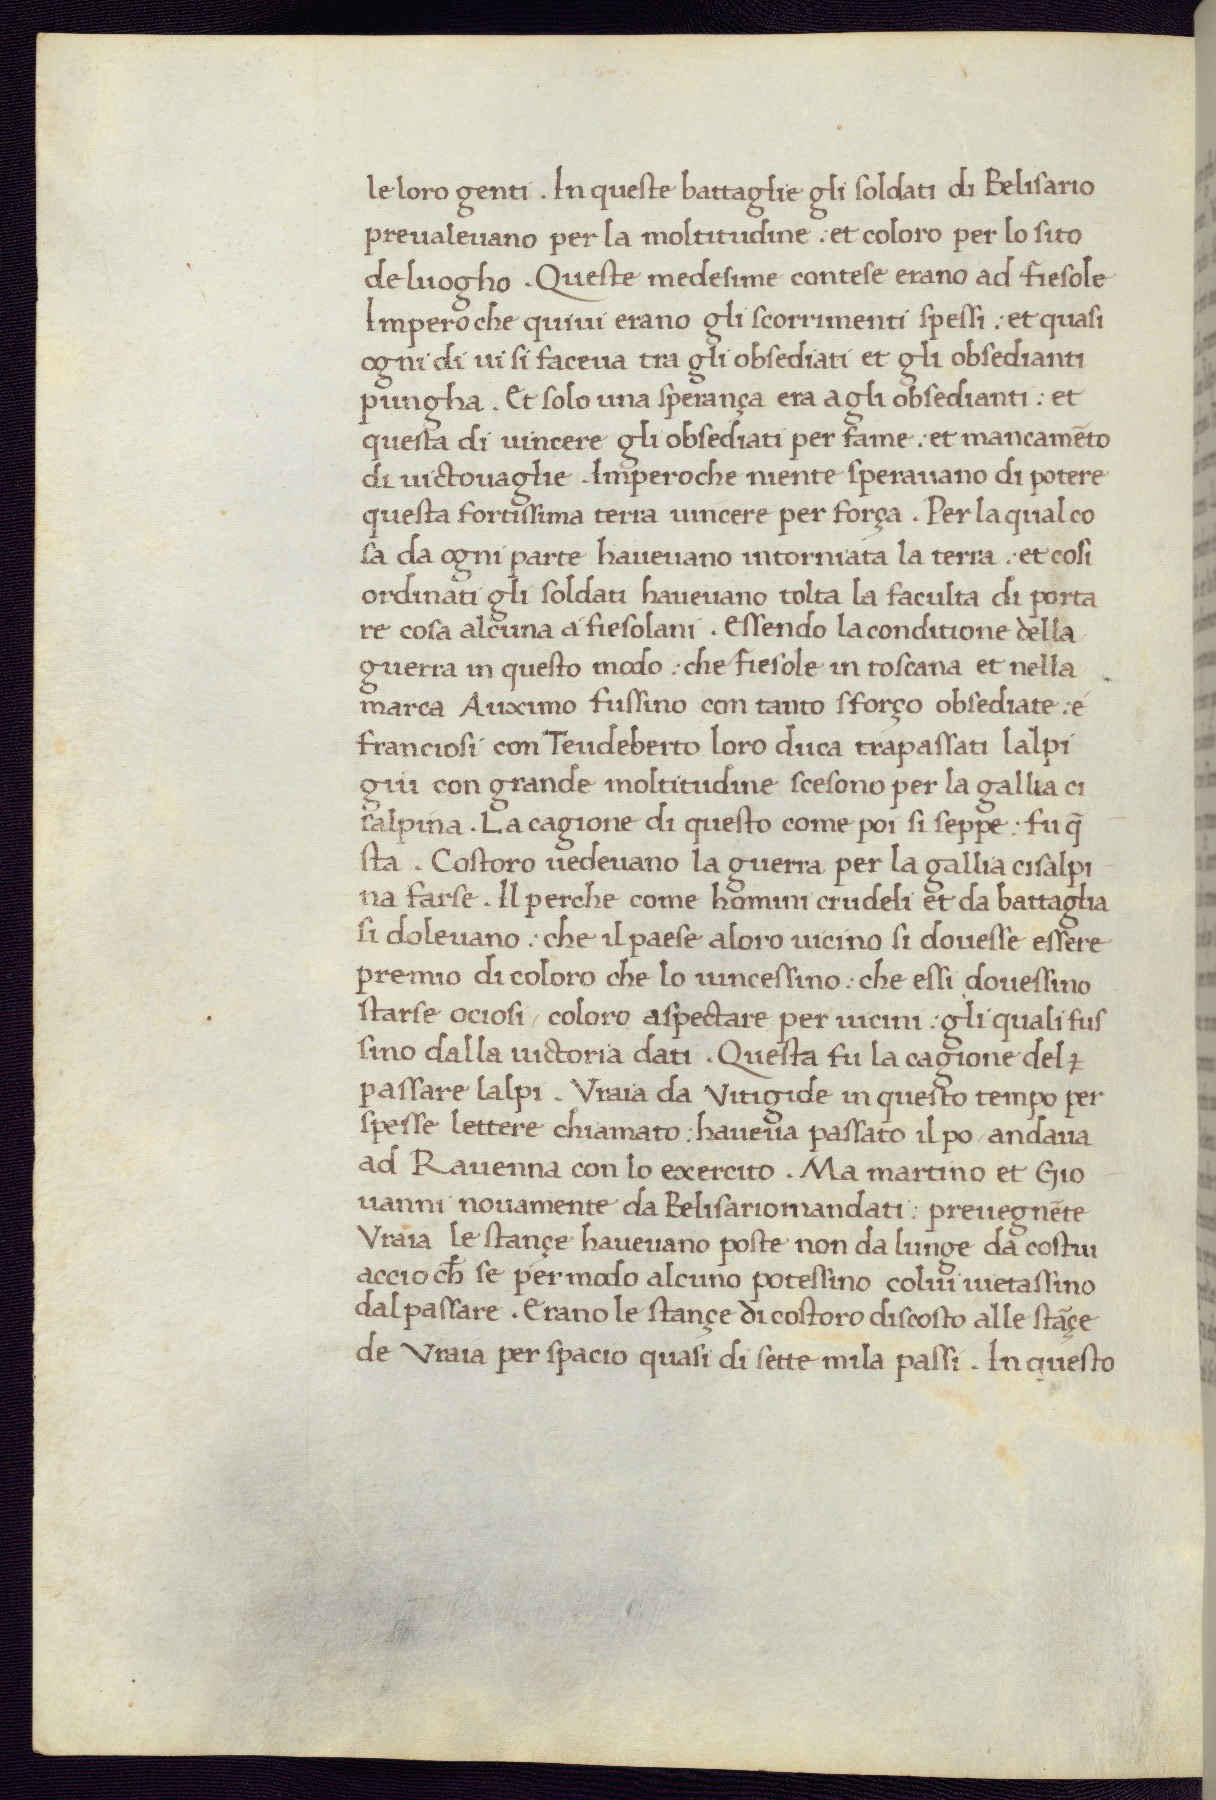 le loro genti . In queste battaglie gli soldati di Belisario
preualeuano per la moltitudine : et coloro per lo sito
de luogho . Queste medesime contese erano ad fiesole
Impero che quiui erano gli scorrimenti spessi : et quasi
ogni di ui si faceua tra gli obsediati et gli obsedianti
pungha . Et solo una sperança era agli obsedianti : et
questa di uincere gli obsediati per fame : et mancamēto
di uictouaglie . Impero che niente sperauano di potere
questa fortissima terra uincere per força . Per la qual co
sa da ogni parte haueuano intorniata la terra : et cosi
ordinati gli soldati haueuano tolta la faculta di porta
re cosa alcuna a fiesolani . Essendo la conditione della
guerra in questo modo : che fiesole in toscana et nella
marca Auximo fussino con tanto sforço obsediate : e
franciosi con Teudeberto loro duca trapassati lalpi
giu con grande moltitudine scesono per la gallia ci
salpina . La cagione di questo come poi si seppe : fu q̄
sta . Costoro uedeuano la guerra per la gallia cisalpi
na farse . Il perche come homini crudeli et da battaglia
si doleuano : che il paese aloro uicino si douesse essere
premio di coloro che lo uincessino : che essi douessino
starse ociosi / coloro aspectare per uicini : gli quali fus
sino dalla uictoria dati . Questa fu la cagione del
passare lalpi . Vraia da Vitigide in questo tempo per
spesse lettere chiamato : haueua passato il po / andaua
ad Rauenna con lo exercito . Ma martino et Gio
uanni nouamente da Belisario mandati : preuegnēte
Vraia le stançe haueuano poste non da lunge da costui
accio ch̄ se per modo alcuno potessino colui uietassino
dal passare . Erano le stançe di costoro discosto alle stāçe
de Vraia per spacio quasi di sette mila passi . In questo